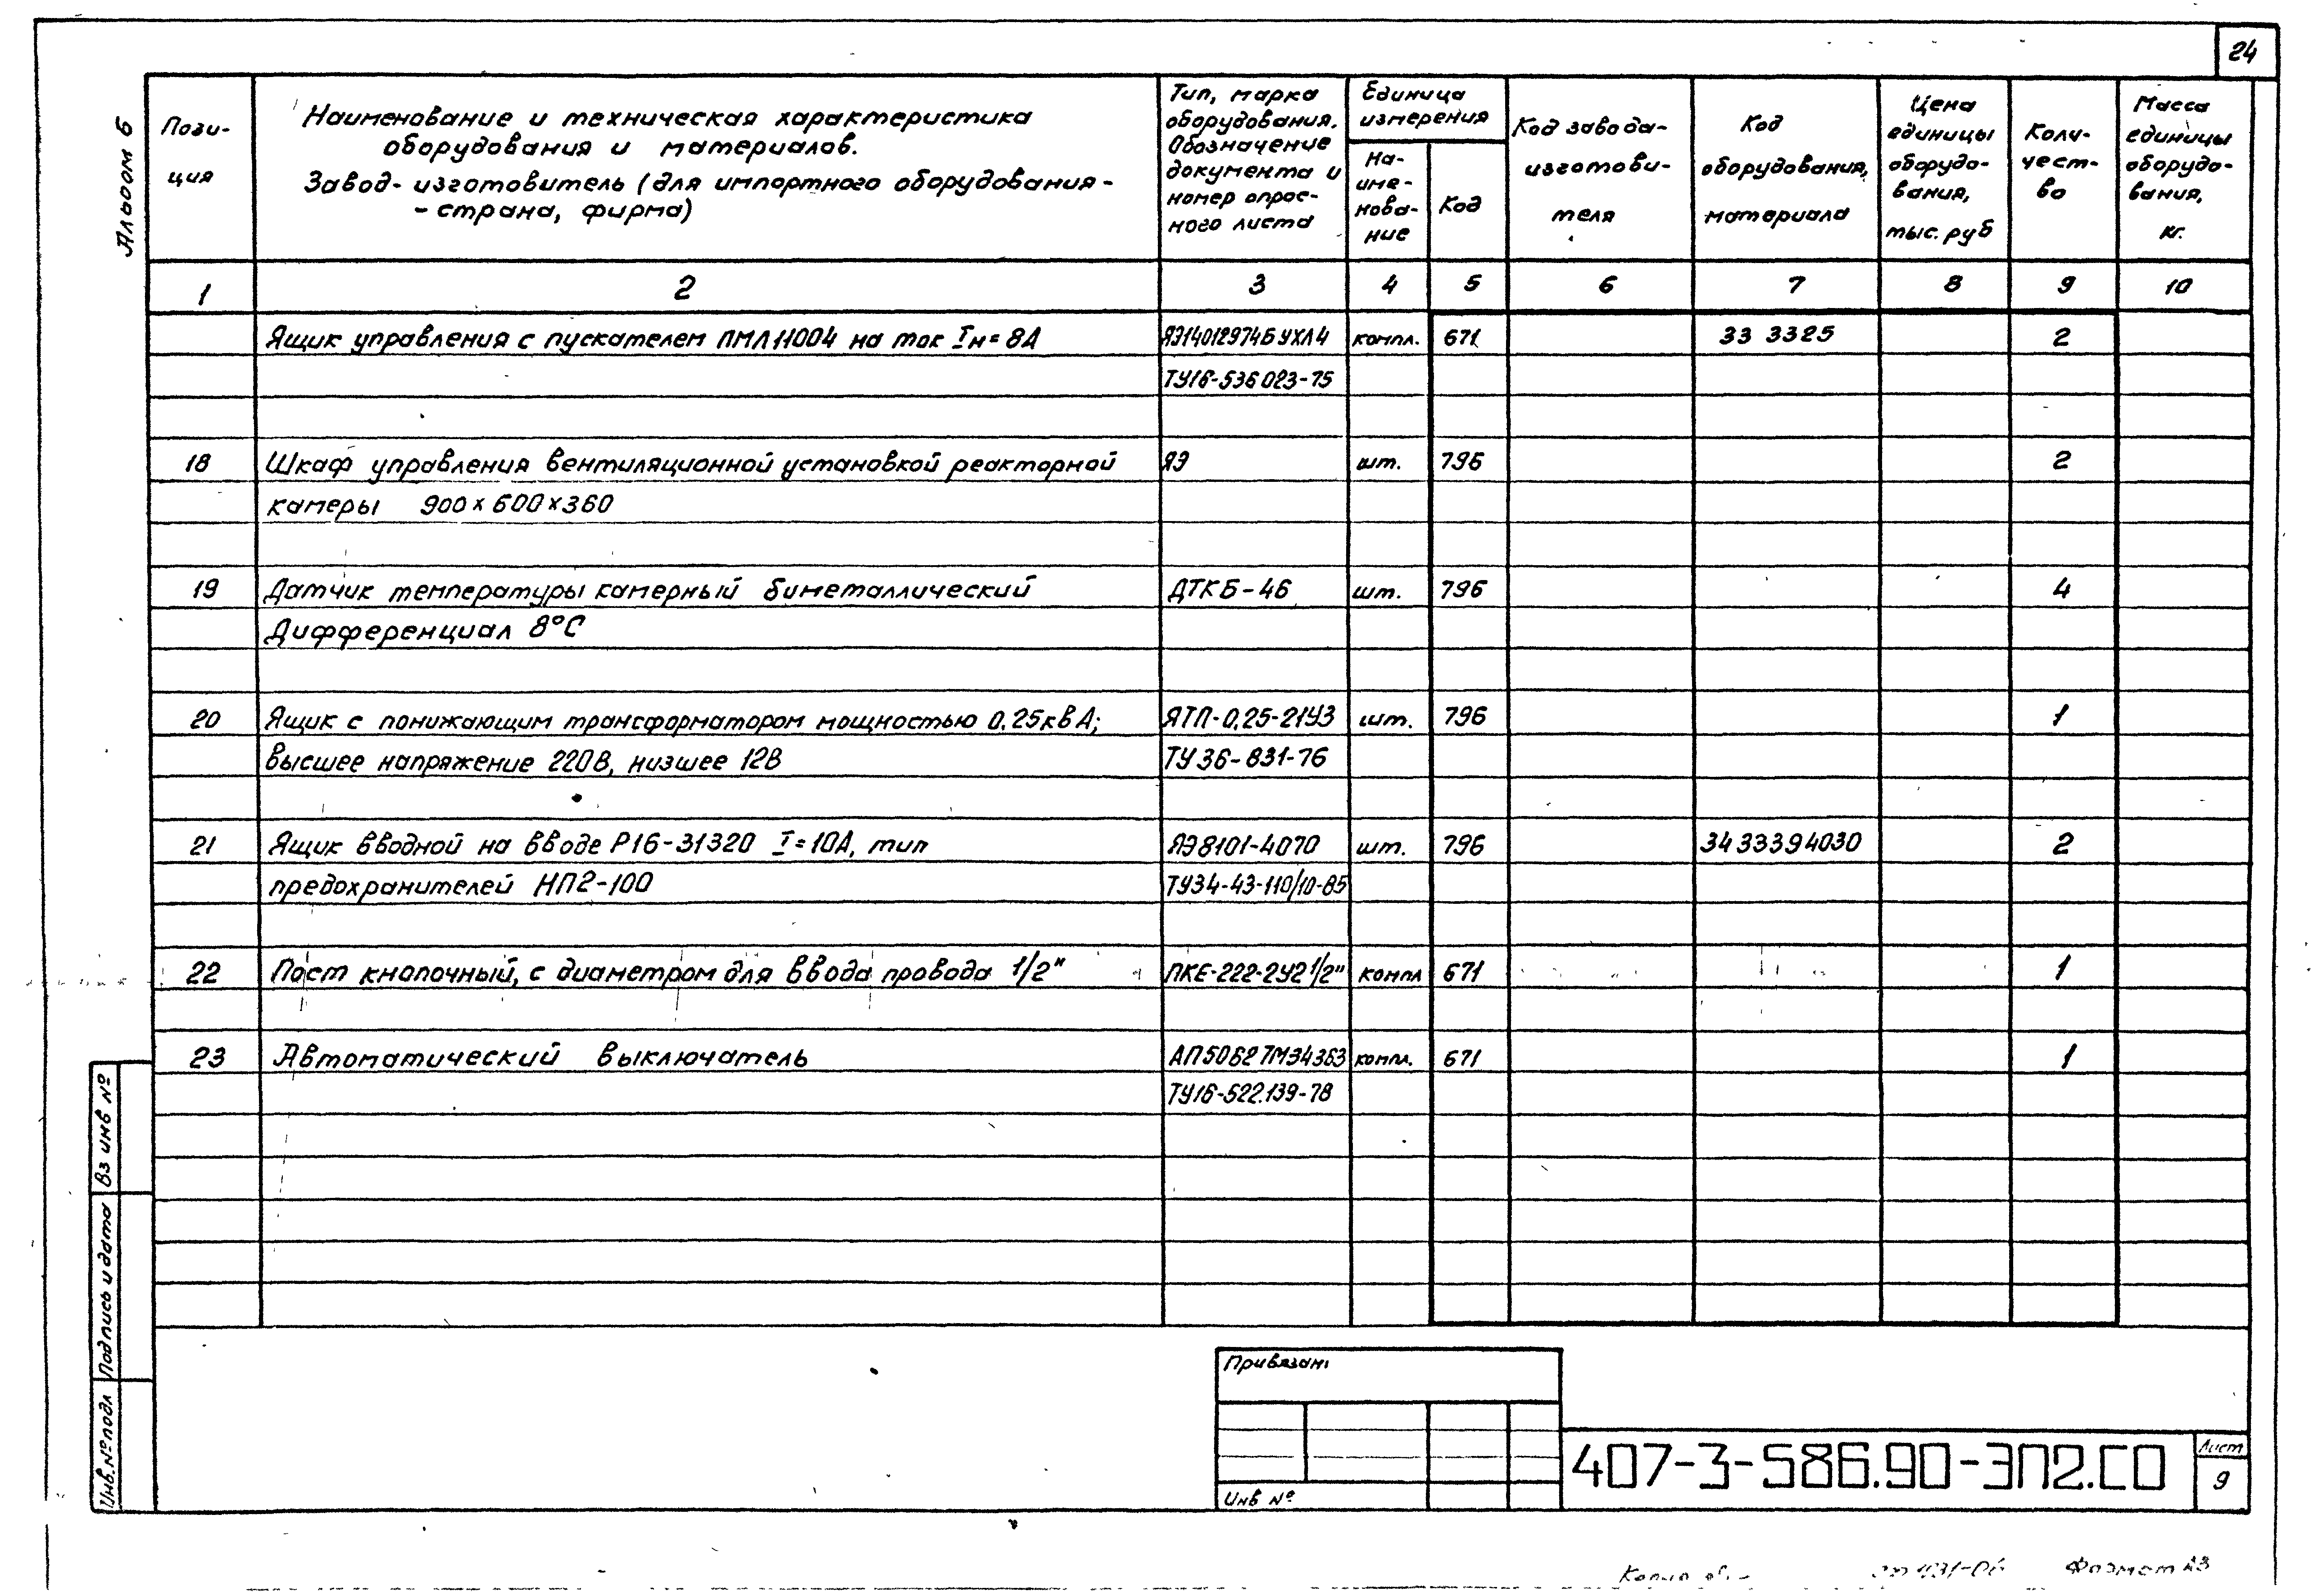 24
Альбом 6
Пози-
ция
Наименование и техническая характеристика
оборудования и материалов.
Завод-изготовитель (для импортного оборудования -
- страна, фирма)
Тип, марка
оборудования.
Обозначение
документа и
номер опрос-
ного листа
Единица
измерения
На-
име-
нова-
ние
Код
Код завода-
изготови-
теля
Код
оборудования,
материала
Цена
единицы
оборудо-
вания,
тыс. руб
Коли-
чест-
во
Масса
единицы
оборудо-
вания,
кг.
1 2 3 4 5 6 7 8 9 10
Ящик управления с пускателем ПМЛ11004 на ток Iн=8А ЯЭ14012974Б УХЛ4 компл. 671 33 3325 2
ТУ16-536 023-75
18 Шкаф управления вентиляционной установкой реакторной ЯЭ шт. 796 2
камеры 900×600×360
19 Датчик температуры камерный биметаллический ДТКБ-46 шт. 796 4
Дифференциал 8°С
20 Ящик с понижающим трансформатором мощностью 0,25кВА; ЯТП-0,25-21У3 шт. 796 1
высшее напряжение 220В, низшее 12В ТУ36-831-76
21 Ящик вводной на вводе Р16-31320 I=10А, тип ЯЭ8101-4070 шт. 796 3433394030 2
предохранителей НП2-100 ТУ34-43-110/10-85
22 Пост кнопочный, с диаметром для ввода провода 1/2" ПКЕ-222-2У2 1/2" компл 671 1
23 Автоматический выключатель АП50Б27МЭ4363 компл. 671 1
ТУ16-522.139-78
Вз инв №
Подпись и дата
Инв.№подл
Привязан:
Инв №
407-3-586.90-ЭП2.СО
Лист
9
Формат А3